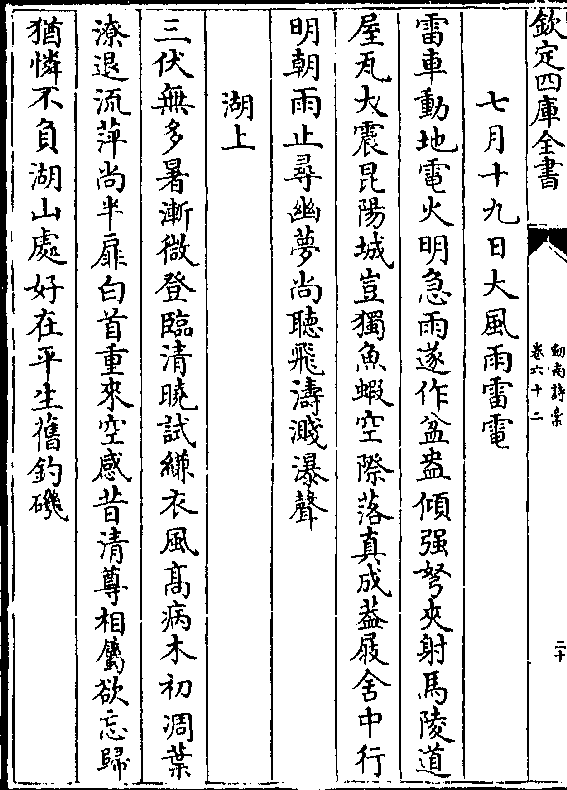 欽定四庫全書
劒南詩藁
卷六十二
二十
七月十九日大風雨雷電
雷車動地電火明急雨遂作盆盎傾强弩夾射馬陵道
屋瓦大震昆陽城豈獨魚蝦空際落真成葢屐舍中行
明朝雨止尋幽夢尚聽飛濤濺瀑聲
湖上
三伏無多暑漸微登臨清曉試縑衣風髙病木初凋葉
潦退流萍尚半扉白首重來空感昔清尊相屬欲忘歸
猶憐不負湖山處好在平生舊釣磯